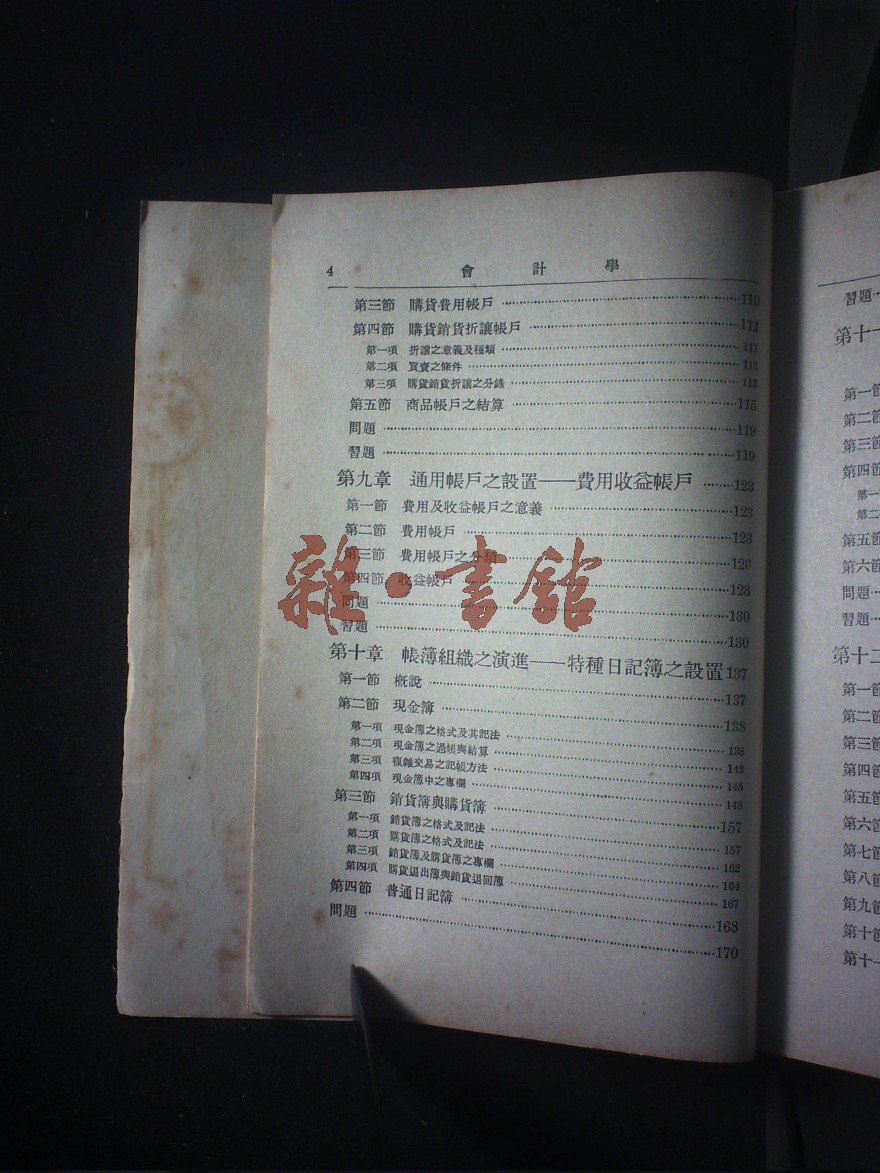 4 會計學
第三節 購貨費用帳戶 110
第四節 購貨銷貨折讓帳戶 111
第一項 折讓之意義及種類 111
第二項 買賣之條件 113
第三項 購貨銷貨折讓之分錄 113
第五節 商品帳戶之結算 115
問題 119
習題 119
第九章 通用帳戶之設置——費用收益帳戶 123
第一節 費用及收益帳戶之意義 123
第二節 費用帳戶 123
第三節 費用帳戶之分類 126
第四節 收益帳戶 128
問題 130
習題 130
第十章 帳簿組織之演進——特種日記簿之設置 137
第一節 概說 137
第二節 現金簿 138
第一項 現金簿之格式及其記法 138
第二項 現金簿之過帳與結算 142
第三項 複雜交易之記帳方法 145
第四項 現金簿中之專欄 148
第三節 銷貨簿與購貨簿 157
第一項 銷貨簿之格式及記法 157
第二項 購貨簿之格式及記法 162
第三項 銷貨簿及購貨簿之專欄 164
第四項 購貨退出簿與銷貨退回簿 167
第四節 普通日記簿 168
問題 170
雜·書館
習題
第十一
第一節
第二節
第三節
第四節
第一
第二
第五節
第六節
問題
習題
第十二
第一節
第二節
第三節
第四節
第五節
第六節
第七節
第八節
第九節
第十節
第十一